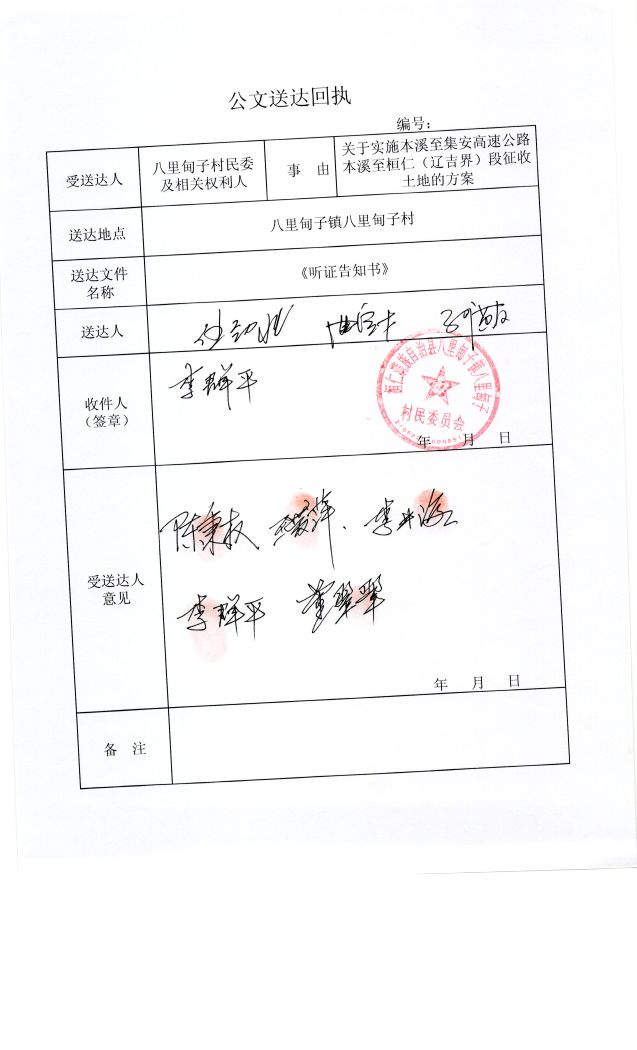 公文送达回执
编号：
受送达人
八里甸子村民委
及相关权利人
事 由
关于实施本溪至集安高速公路
本溪至桓仁（辽吉界）段征收
土地的方案
送达地点
八里甸子镇八里甸子村
送达文件
名称
《听证告知书》
送达人
收件人
（签章）
李群平
桓仁满族自治县八里甸子镇八里甸子
村民委员会
年 月 日
受送达人
意见
陈秉权
李群平
年 月 日
备 注